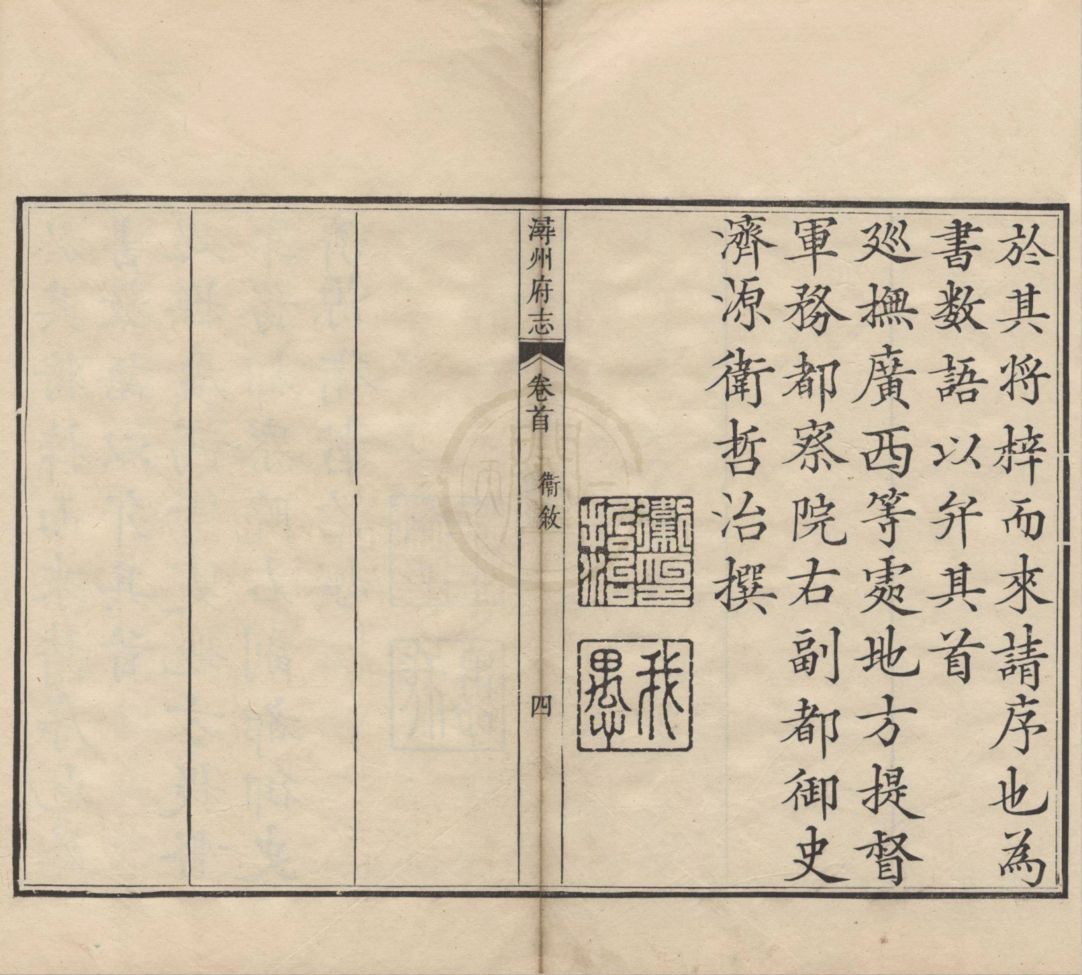 於其将梓而來請序也為
書数語以弁其首
廵撫廣西等處地方提督
軍務都察院右副都御史
濟源衛哲治撰
衛哲治印
我愚
潯州府志
卷首
衛敘
四